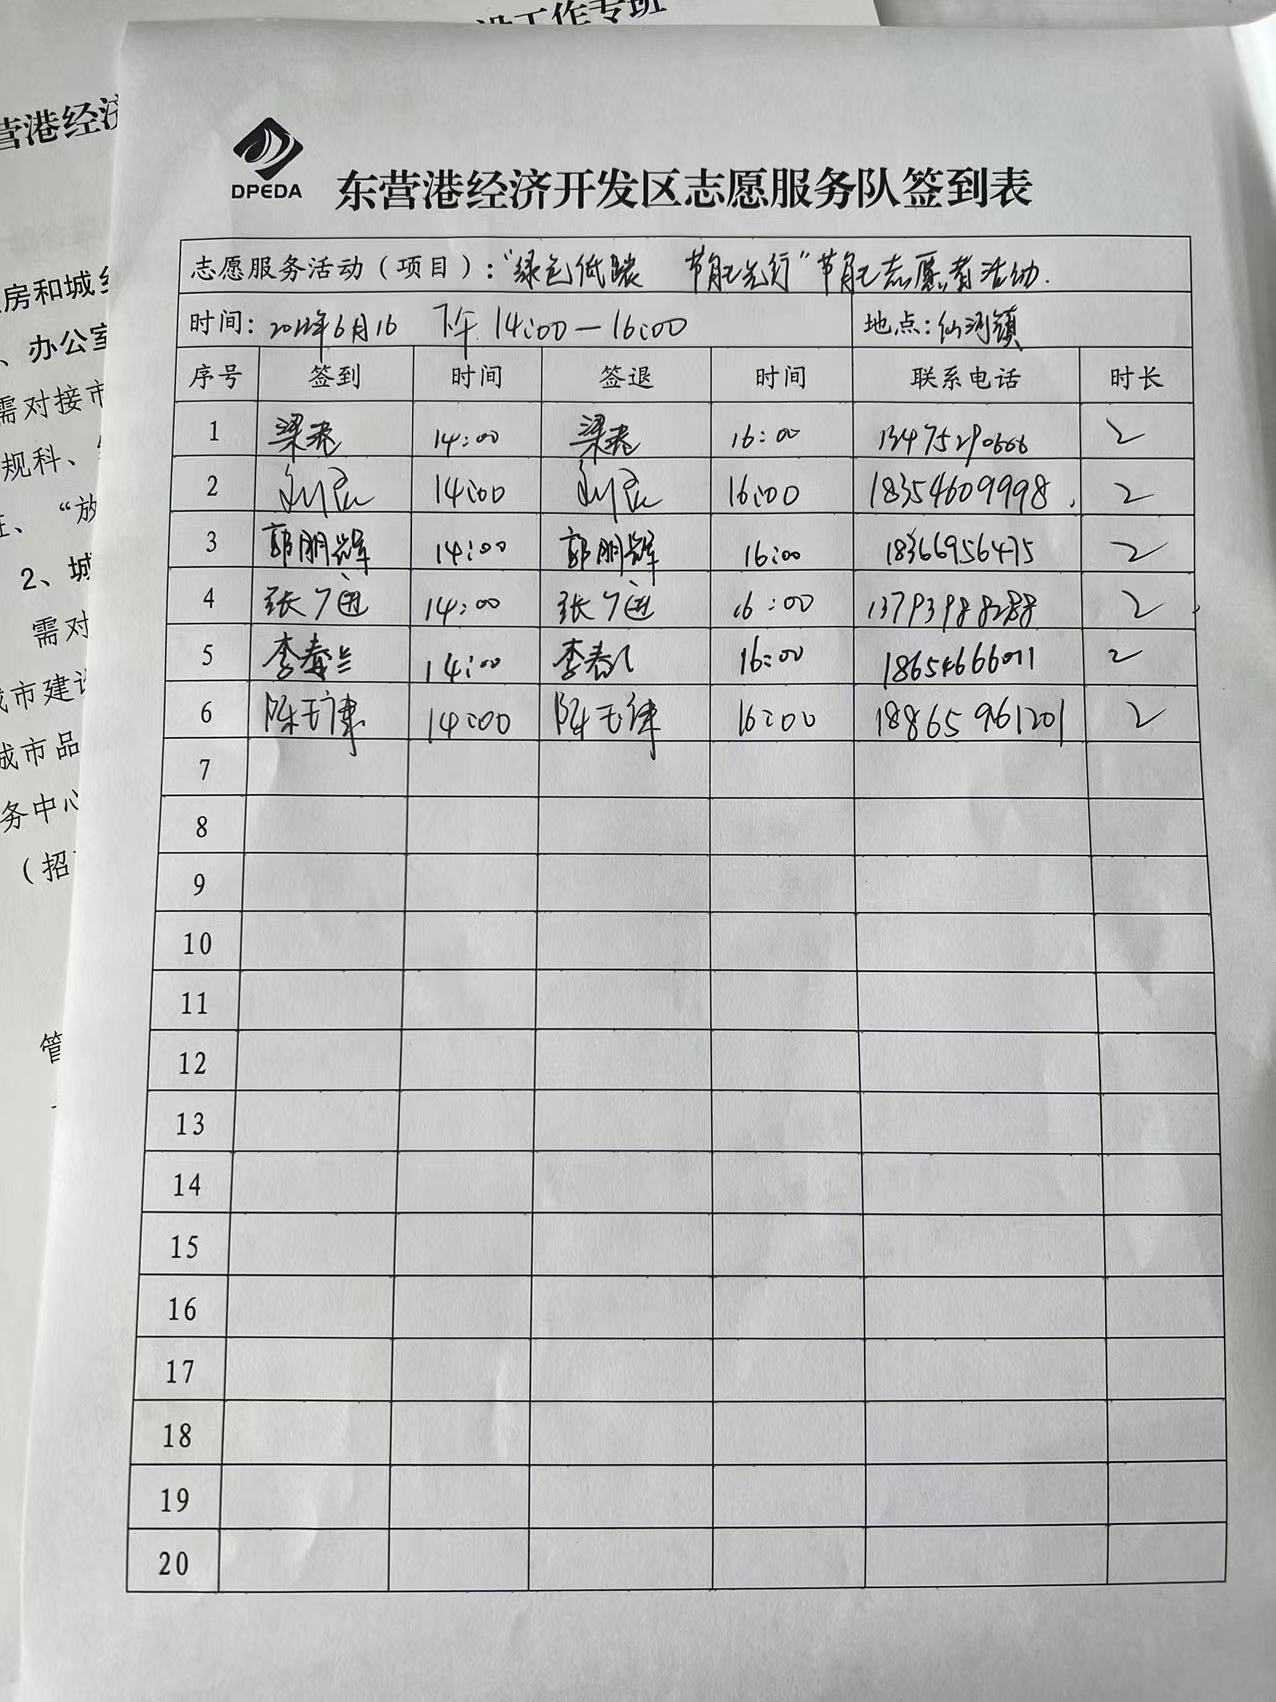 设工作专班
营港经济
房和城乡
、办公室
需对接市
规科、
、“放
2、城
需对
城市建设
城市品
务中心
（招
管
DPEDA
东营港经济开发区志愿服务队签到表
志愿服务活动（项目）：“绿色低碳 节能先行”节能志愿者活动.
时间：2022年6月16 下午 14:00—16:00 地点：仙河镇
序号 签到 时间 签退 时间 联系电话 时长
1 14:00 16:00 13475290666 2
2 14:00 16:00 18354609998 2
3 郭朋辉 14:00 郭朋辉 16:00 18366956475 2
4 张广进 14:00 张广进 16:00 13793988288 2
5 李春兰 14:00 李春兰 16:00 18654666011 2
6 陈玉津 14:00 陈玉津 16:00 18865961201 2
7
8
9
10
11
12
13
14
15
16
17
18
19
20